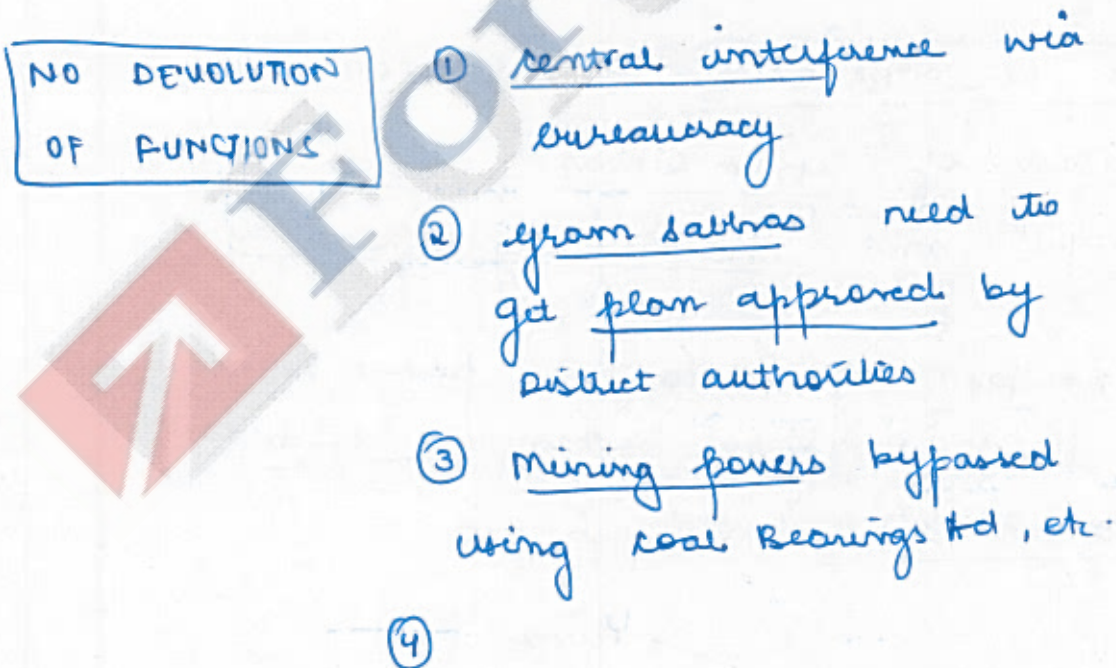 NO DEVOLUTION
OF FUNCTIONS
① central interference via
bureaucracy
② gram sabhas need to
get plan approved by
District authorities
③ Mining powers bypassed
using coal Bearings Act, etc.
④
For